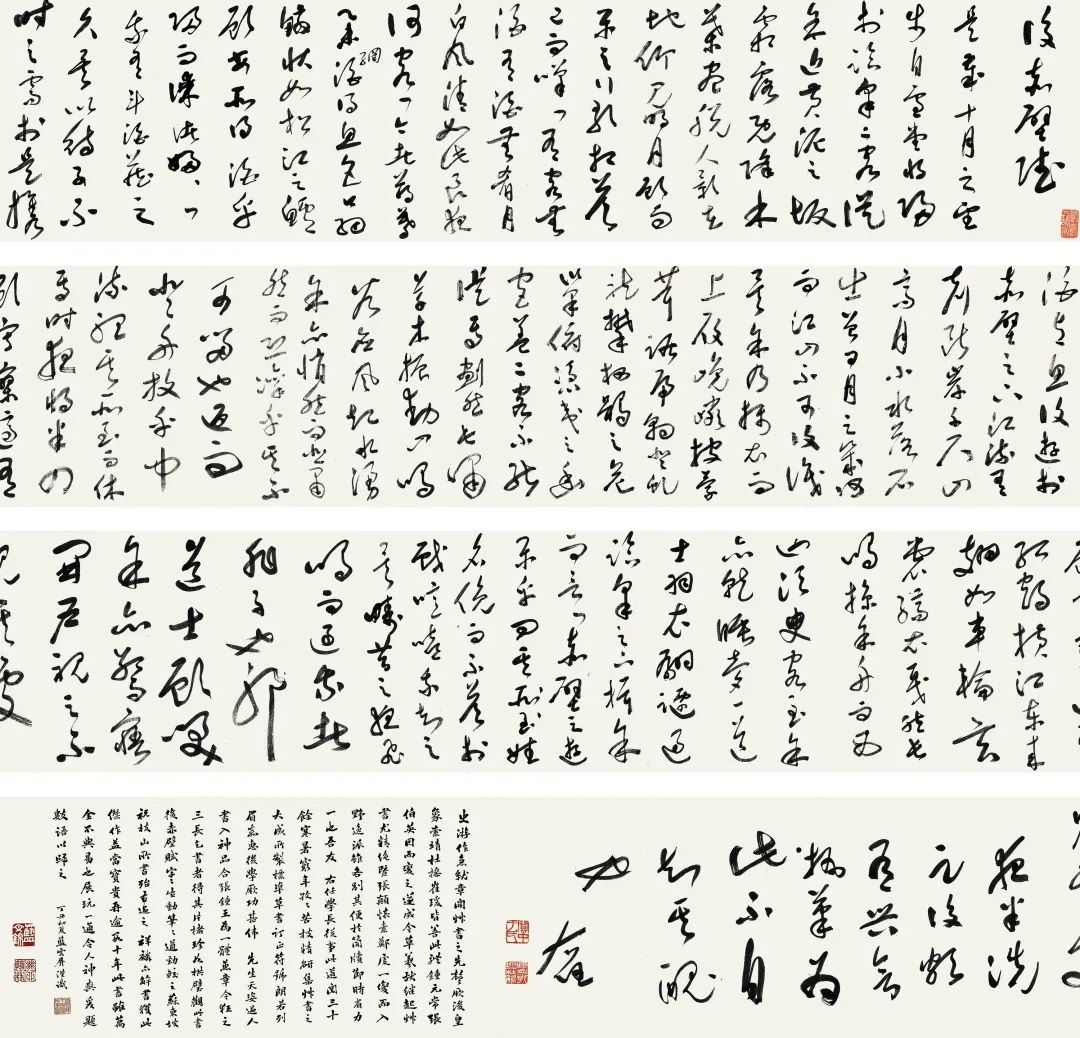 後赤壁賦
是歲十月之望
步自雪堂將歸
於臨皋二客從
余過黃泥之坂
霜露既降木
葉盡脫人影在
地仰見明月顧而
樂之行歌相答
已而嘆曰有客無
酒有酒無肴月
白風清如此良夜
何客曰今者薄暮
舉網得魚巨口細
鱗狀如松江之鱸
顧安所得酒乎
歸而謀諸婦婦曰
我有斗酒藏之
久矣以待子不
時之需於是攜
酒與魚復遊於
赤壁之下江流有
聲斷岸千尺山
高月小水落石
出曾日月之幾何
而江山不可復識
矣余乃攝衣而
上履巉巖披蒙
茸踞虎豹登虬
龍攀栖鶻之危
巢俯馮夷之幽
宮蓋二客不能
從焉劃然長嘯
草木振動山鳴
谷應風起水湧
余亦悄然而悲肅
然而恐凜乎其不
可留也返而
登舟放乎中
流聽其所至而休
焉時夜將半四
顧寂寥適有
孤鶴橫江東來
翅如車輪玄
裳縞衣戛然長
鳴掠余舟而西
也須臾客去余
亦就睡夢一道
士羽衣翩躚過
臨皋之下揖余
而言曰赤壁之遊
樂乎問其姓
名俛而不答嗚
呼噫嘻我知之
矣疇昔之夜飛
鳴而過我者
非子也耶
道士顧笑
余亦驚寤
開戶視之不
見其處
夜半
興
筆為
此不自
知其醜
也 右任
史游作急就章開艸書之先聲厥後皇
象索靖杜操崔瑗皆善此體鍾元常張
伯英因而變之遂成今草羲獻繼起艸
書尤精絕暨張顛懷素鄭虔一變而入
野逸派雖各別其便於簡牘即時省力
一也吾友 右任學長從事此道閱三十
餘寒暑窮年孜孜苦技精研集艸書之
大成所製標準草書訂正符號朗若列
眉嘉惠後學厥功甚偉 先生天姿過人
書入神品合張鍾王為一體兼章今狂之
三長乞書者得其片楮珍如拱璧觀此書
後赤壁賦字字生動筆筆遒勁較之蘇東坡
祝枝山所書殆有過之 祥麟亦解書獲此
傑作益當寶貴再逾數十年此書雖萬
金不與易也展玩一過令人神與爰題
數語以歸之
丁丑初夏藍雲屏謹識